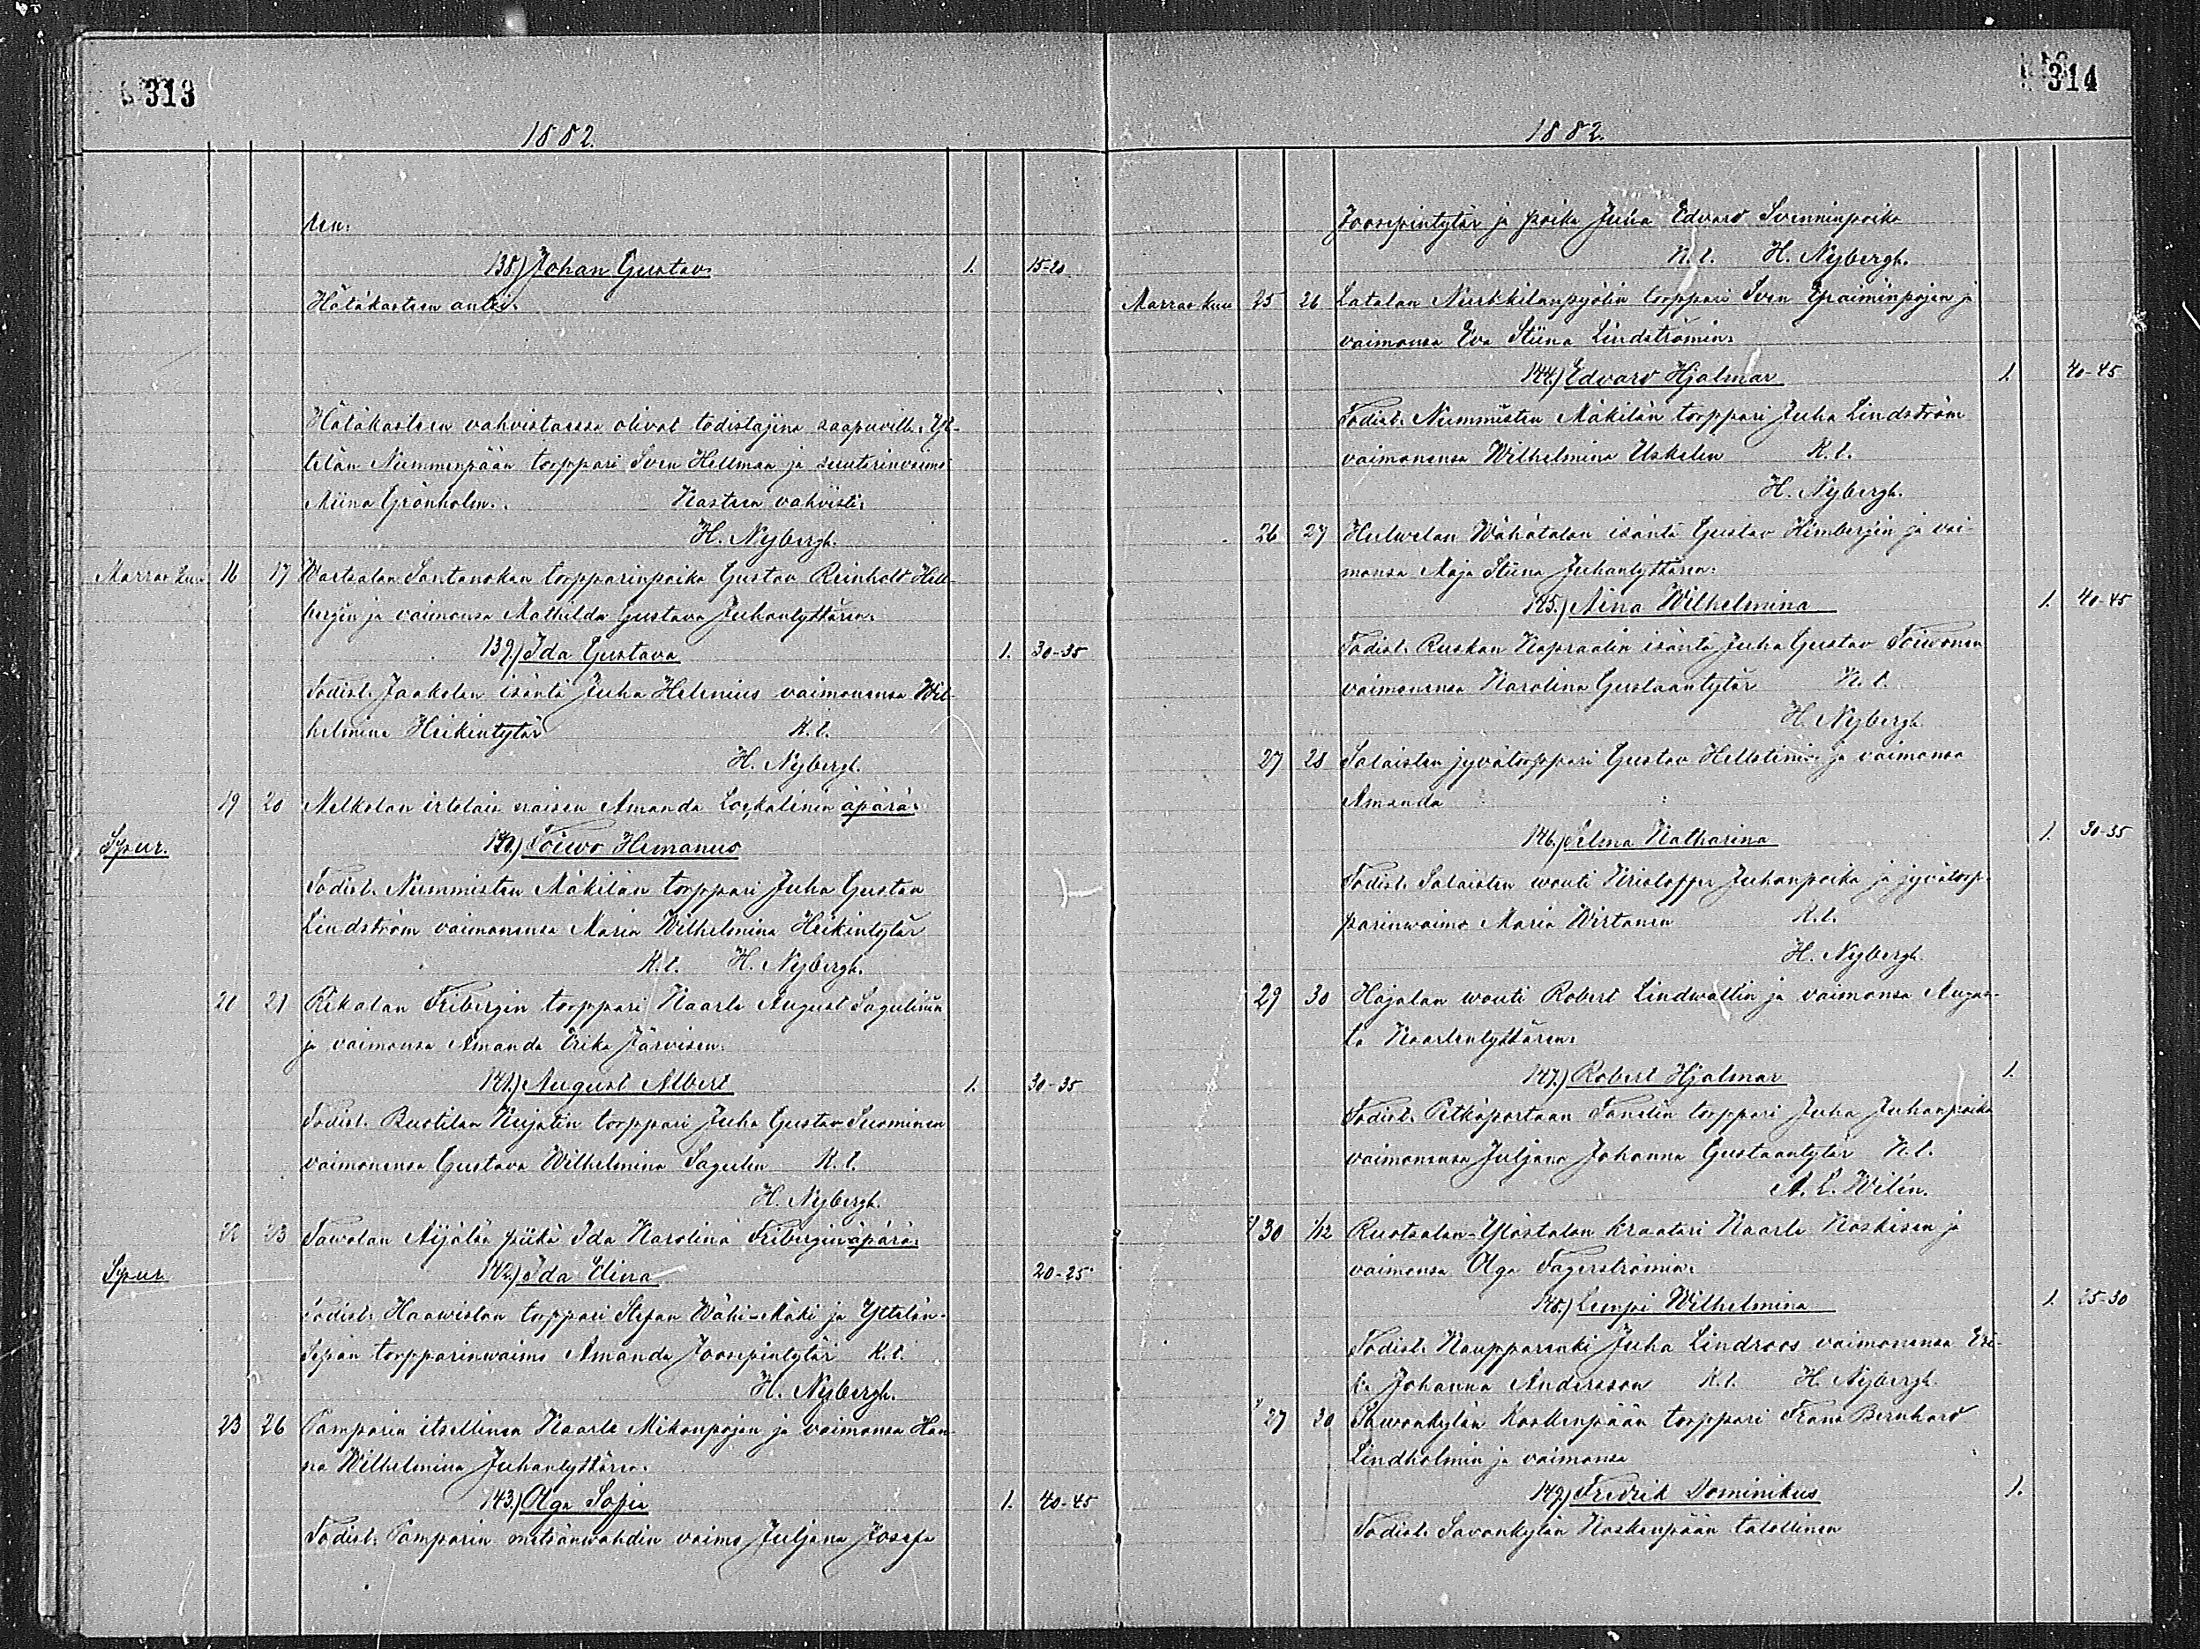 313
1882.
138.) Johan Gustav. 1. 15-20
Hätäkasteen antoi:
Hätäkasteen vahvistaessa olivat todistajina saapuvilla: Yl-
telän Nummenpään torppari Sven Hellman ja suutarinvaimo
Miina Grönholm. Kasteen vahvisti:
H. Nybergh.
Marrask. 16 17 Santanokan torpparinpoika Gustav Reinhold Hell-
bergin ja vaimonsa Mathilda Gustava Juhantyttären:
139.) Ida Gustava 1. 30-35
Todist. Jaakolan isäntä Juha Helenius vaimonensa Wil-
helmina Heikintytär K.t.
H. Nybergh.
19 20 Melkolan irtolais naisen Amanda äpärä:
Spur. 140.) Toiwo Hemanus
Todist. Nummisten Mäkilän torppari Juha Gustav
Lindström vaimonensa Maria Wilhelmina Heikintytär
K.t. H. Nybergh.
21 Fribergin torppari Kaarle August Sagulinin
ja vaimonsa Amanda Erika Järvisen:
141.) August Albert 1. 30-35
Todist. Ruotilan torppari Juha Gustav Suominen
vaimonensa Gustava Wilhelmina Sagulin K.t.
H. Nybergh.
Sawolan Äijälän piika Ida Karolina Fribergin äpärä:
Spur. 142.) Ida Elina 20-25
Todist. Haawiston torppari Stefan Wähi-Mäki ja Yttelän
Sepän torpparinwaimo Amanda Joosepintytär K.t.
H. Nybergh.
23 26 Pamparin itsellinen Kaarle Mikonpojan ja vaimonsa Han-
na Wilhelmina Juhantyttären:
143.) Olga Sofia 1. 40-45
Todist: Pamparin metsänwahdin vaimo Juljana Josefa
314
1882.
Joosepintytär ja poika Juha Edvard Svenninpoika
K.t. H. Nybergh.
Marraskuu 25 26 torppari Sven Efraiminpojan ja
vaimonsa Eva Stiina Lindströmin:
144.) Edvard Hjalmar 1. 40-45
Todist. Nummisten Mäkilän torppari Juha Lindström
vaimonensa Wilhelmina Uskelin K.t.
H. Nybergh.
26 27 Wähätalon isäntä Gustav Himbergin ja vai-
monsa Maja Stiina Juhantyttären:
145.) Aina Wilhelmina 1. 40-45
Todist. Ruskan Kapraalin isäntä Juha Gustav Toiwonen
vaimonensa Karolina Gustaantytär K.t.
H. Nybergh
27 28 Salaisten jyvätorppari Gustav Hellstenin ja vaimonsa
Amanda
146.) Selma Katharina 1. 30-35
Todist. Salaisten wouti Kristoffer Juhanpoika ja jyvätorp-
parinwaimo Maria Wirtanen K.t.
H. Nybergh
29 30 Hajalan wouti Robert Lindwallin ja vaimonsa Augus-
ta Kaarlentyttären:
147.) Robert Hjalmar 1.
Todist. Pitkäportaan torppari Juha Juhanpoika
vaimonensa Juljana Johanna Gustaantytär K.t.
A. L. Wilén.
30 1/12 Ruotsalan-Ylöstalon kraatari Kaarle Koskisen ja
vaimonsa Olga Fagerströmin:
148.) Lempi Wilhelmina 1. 25-30
Todist. Kaupparenki Juha Lindroos vaimonensa Eri-
ka Johanna Andersson K.t. H. Nybergh
27 30 Sawonkylän Koskenpään torppari Frans Bernhard
Lindholmin ja vaimonsa
149.) Fredrik Dominikus 1.
Todist. Savonkylän Koskenpään talollinen